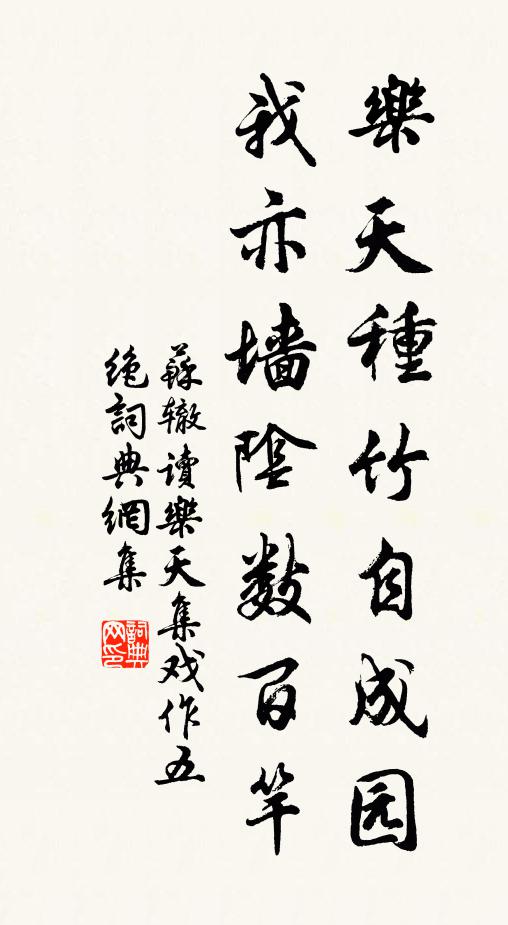 樂天種竹自成园
我亦墙陰数百竿
蘇辙读樂天集戏作五
绝詞典網集
詞典网印